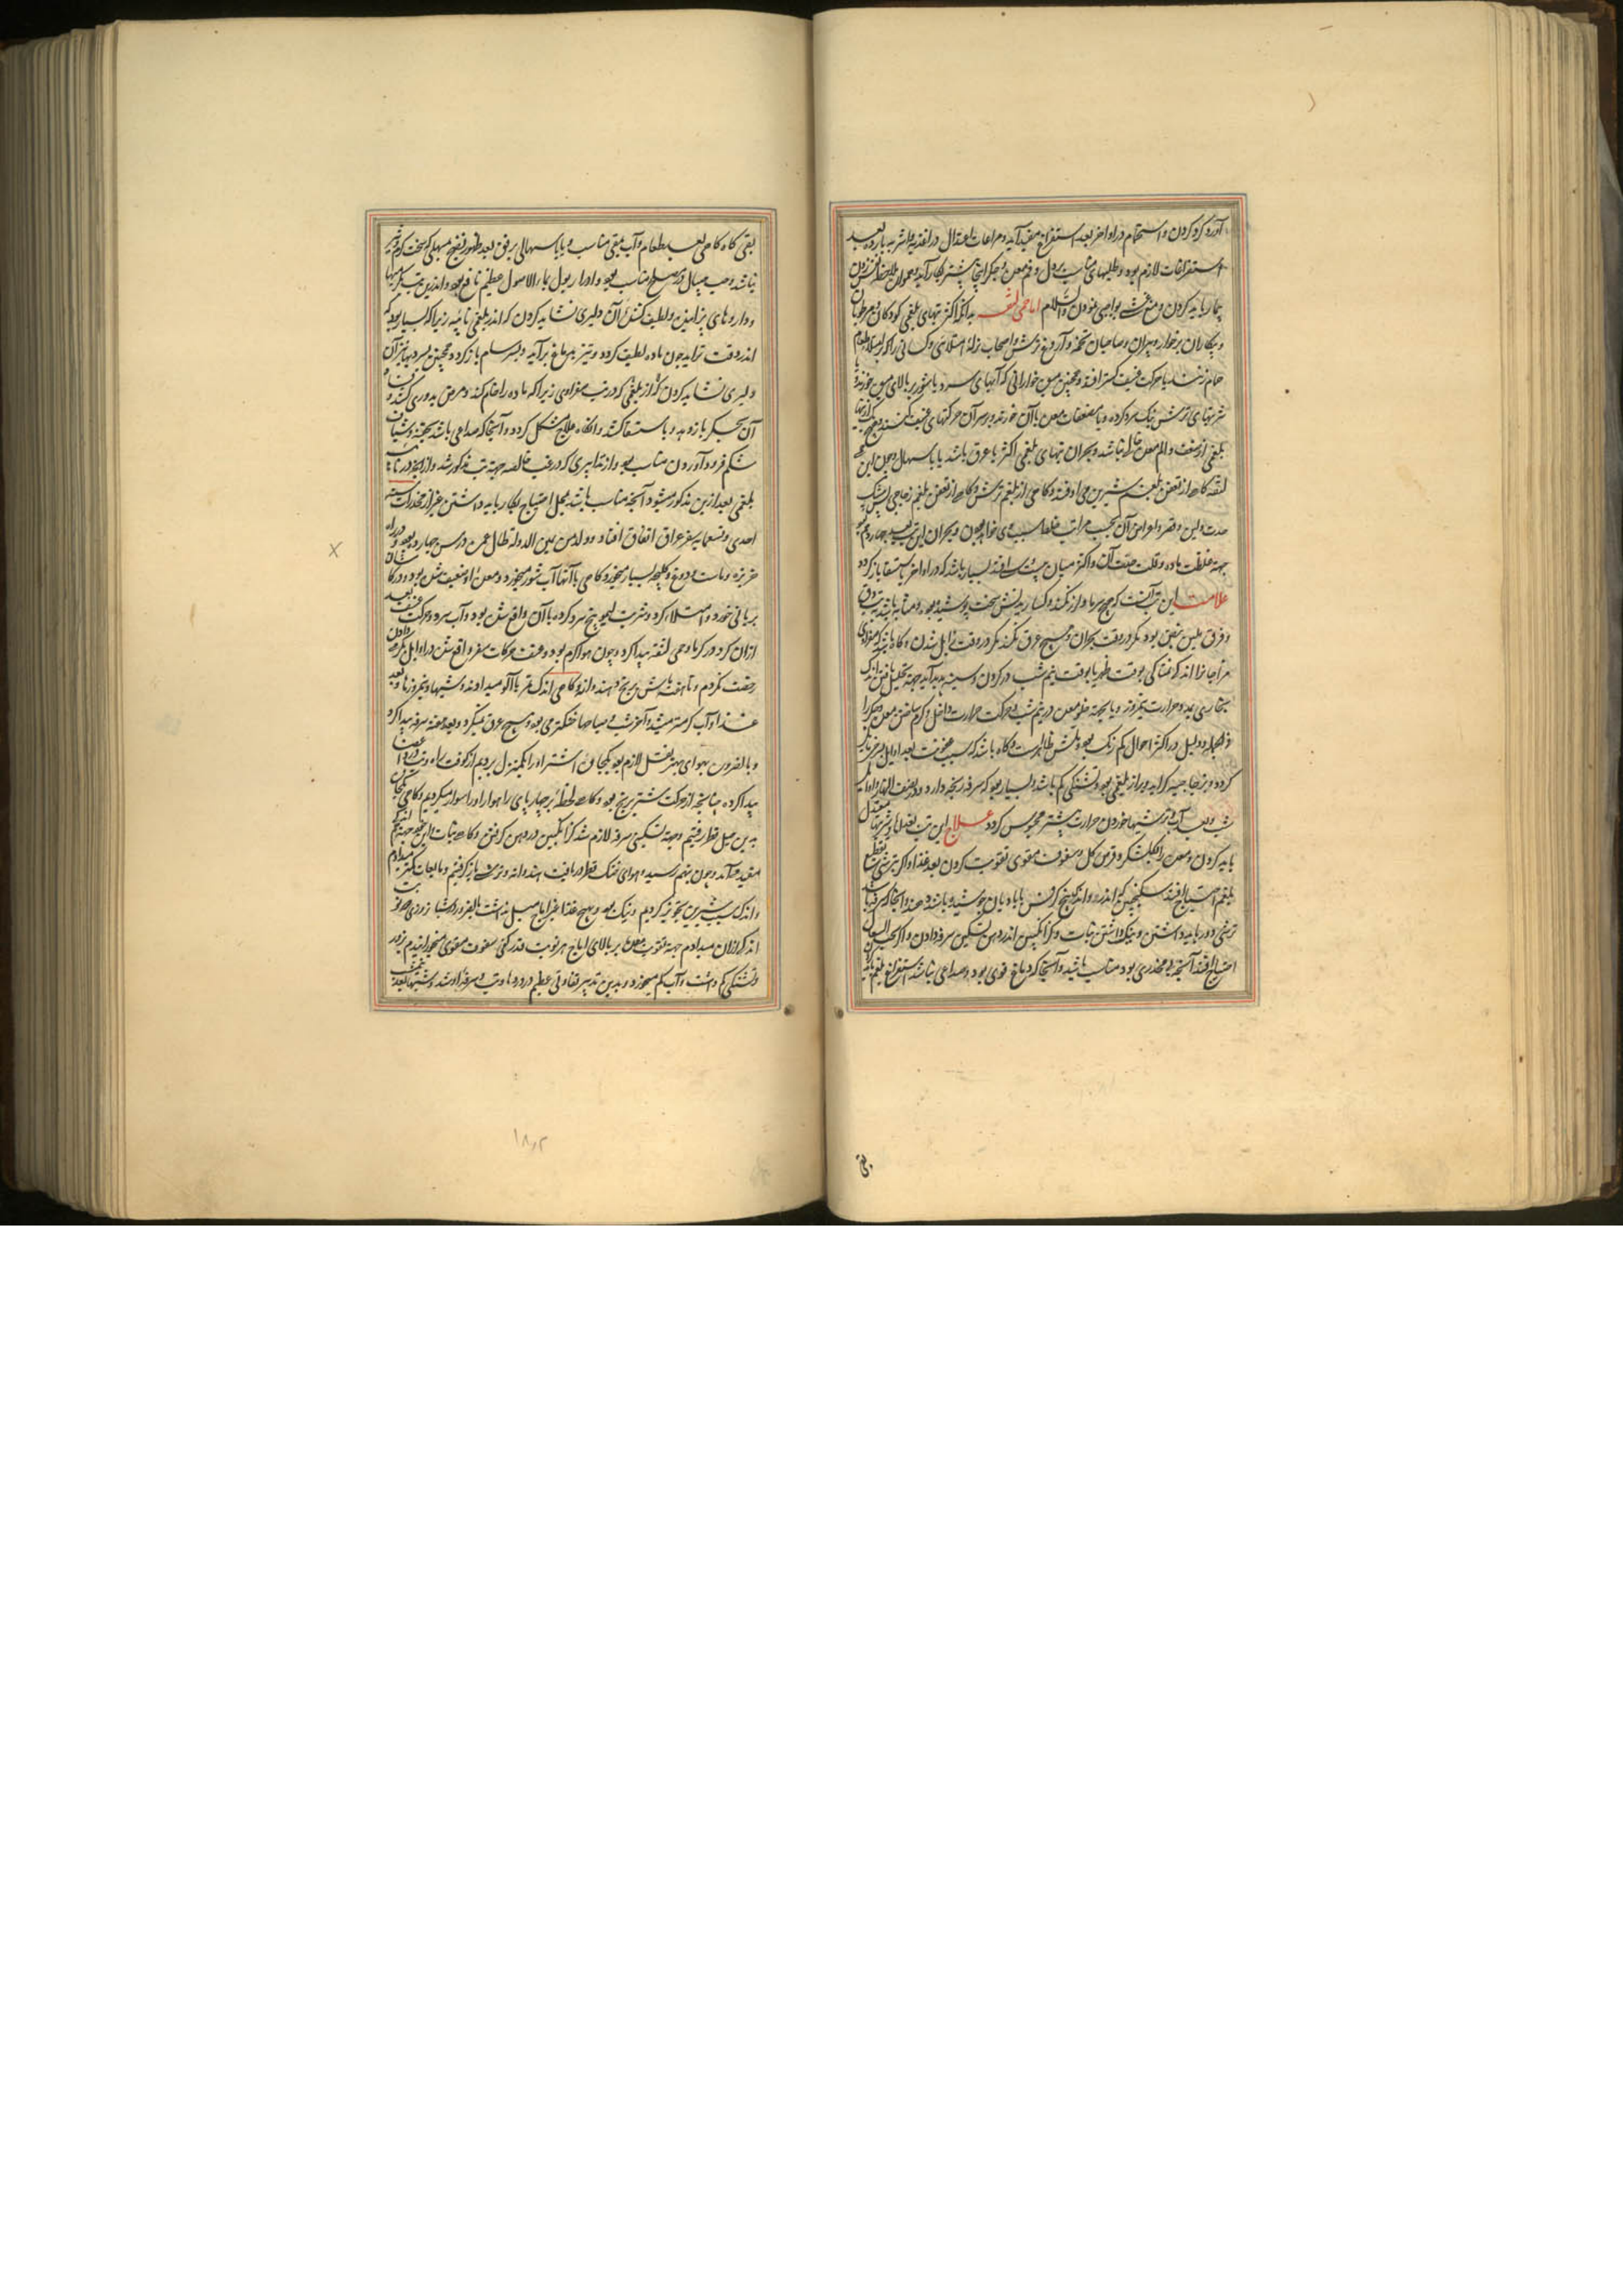 آرد کرد کردن و استحمام در اواخر بعد استفراغ مفید آید و مراعات اعتدال در اغذیه و اشربه بارده بعد
استفراغات لازم بود و طلیهای مناسب بر دل و فم معده و جگر اینجا پیشتر بکار آید
بیمار باید کردن و منع وی نمودن والسلام اما حمی لثقه بدانکه اکثر تبهای بلغمی کودکان و مرطوبان
و بیکاران پرخوار و پیران و صاحبان تخمه و آروغ ترش و اصحاب نزله امتلائی و کسانی را که بر امتلاء طعام
حمام روند یا حرکت عنیف کنند افتد و همچنین میوه خوارانی که آبهای سرد یا شور بر بالای میوه خورند
شربتهای ترش نیک سرد کرده و یا مضعفات معده با آن خورند و بر سر آن حرکتهای عنیف کنند
بلغمی از ضعف و الم معده خالی نباشد و بحران تبهای بلغمی اکثر با عرق باشد یا باسهال و چون این
لثقه گاه از تعفن بلغم شیرین می افتد و گاهی از بلغم ترش و گاه از تعفن بلغم زجاجی
مدت و لین و قصر و اعراض آن بحسب مراتب خلط سبب وی خواهد بودن و بحران این تب بعد چهاردهم بود
جهة غلظت ماده و قلت عفت آن و اکثر میان بیست افتد بسیار باشد که در اواخر باستسقا باز گردد
علامت این تب آنست که هیچ سرما و لرز نکند و گساریدنش سخت پوشیده بود و مشابه باشد به تب دق
و فرق بلین نبض بود مگر در وقت بحران و هیچ عرق نکند مگر در وقت زایل شدن و گاه باشد که صفراوی
مزاجانرا اندک غمناکی بوقت ظهر یا بوقت نیم شب در گردن و سینه پدید آید جهة تحلیل یافتن اندک
بخاری بمدد حرارت نیمروز و یا بجهة خلو معده در نیم شب و حرکت حرارت داخل و گرم ساختن معده و جگر را
و فی الجمله و دلیل در اکثر احوال کم رنگ بود و تلشش ظاهر است و گاه باشد که سبب عفونت بعد اوایل سرخ تاریک
گردد و بزجاجیه گراید و براز بلغمی بود و تشنگی کم باشد و بسیار بود که سرفه رنجه دارد و در نصف النهار و اوایل
شب و بعد آب و ترشیها خوردن حرارت پیشتر محسوس گردد علاج این تب بغذاها و شربتهای معتدل
باید کردن و معده را بگلشکر و قرص گل و سفوف مقوی تقویت کردن بعد غذا و اگر بترشی تقطیع
بلغم احتیاج افتد سکنجبین که اندرو اندک بیخ کرفس یا بادیان جوشیده باشند دهند و آنجا که سرفه باشد
ترشی دور باید داشتن و نیک داشتن نبات و گزانگبین اندر دهن تسکین سرفه دادن و اگر بحب السعال
احتیاج افتد آنچه بی مخدری بود مناسب باشد و آنجا که دماغ قوی بود و صداعی نباشد استفراغ بلغم باید
بقی
بقی گاه گاهی بعد طعام و آب بقی مناسب و یا باسهالی برفق بعد ظهور نضج مسهلی که سخت گرم و تیز
نباشد و حب میال در صبح مناسب بود و ادرار بول بماء الاصول عظیم نافع بود و اندرین تب بگرمیها
و داروهای پزانیدن و لطیف کننده آن دلیری نشاید کردن که اندر بلغمی نائبه زیرا که بسیار بود که
اندر وقت تزاید چون ماده لطیف گردد و تیز بدماغ برآید و بسرسام باز گردد و همچنین بسردیها نیز آن
دلیری نشاید کردن که اندر بلغمی که در تب صفراوی زیرا که ماده را خام کند و مرض بدوری کشد و
آن بجگر باز دهد و باستسقا کشد و آنگاه علاج مشکل گردد و آنجا که صداعی باشد بحقنه و شیاف
شکم فرود آوردن مناسب بود و از تدابیری که در غب خالصه جهة تب مذکور شد و از آنچه در نائبه
بلغمی بعد ازین مذکور میشود آنچه مناسب باشد بمحل احتیاج بکار باید داشتن غیر از مخدرات
احدی و تسعمایه سفر عراق اتفاق افتاد و ولد من معین الدوله طال عمره در سن چهارده بود و در راه
خربزه و ماست و دوغ و کلیچه بسیار میخورد و گاهی با آنها آب شور میخورد و معده او ضعیف شده بود و در کاشان
بریانی خورد و امتلاء کرد و شربت لیموی بیخ سرد کرده با آن واقع شده بود و آب سرد و حرکت عنیف بعد
از آن کرد و در گرما و حمی لثقه پیدا کرد و چون هوا گرم بود و عنف حرکات سفر واقع شده در اوایل بگرمی دادن
رخصت نکردم و تا هفته اش برنج و هندوانه و گاهی اندک تمر با آلو میدادند و شبها و نیمروزها و بعد
غذا و آب گرمتر میشد و آخر شب و صباحها خنکتر می بود و هیچ عرق نمیکرد و بعد هفته سرفه پیدا کرد
و بالضرورت بهوای بهتر نقل لازم بود بکجاوه اشتر او را یکمنزل بردیم از کوفت راه درد اعضا
پیدا کرده چنانچه از حرکت شتر برنج بود و گاه لحظه بر چهارپای راهوار او را سوار میکردیم و گاهی بکجاوه
بدین میل قطار رفتیم و جهة تسکین سرفه لازم شد گزانگبین در دهن گرفتن و گاه نبات و این هم
مفید می آمد و چون بنهم رسید و هوای خنک قطار دریافت هندوانه و ترشی باز گرفتیم و مایعات کمتر میدادم
و اندک سیب شیرین تجویز کردیم و نیک بود و بهیچ غذا غیر اماج میل نداشت بالضرورت
اندک از آن میدادم جهة تقویت معده بر بالای اماج هر نوبت قدر کفی سفوف مقوی میخورانیدم بزور
و تشنگی کم داشت و آب کم میخورد و بدین تدبیر تفاوتی عظیم در درد و تب و سرفه او شد و شبها بعد
۱۸۲